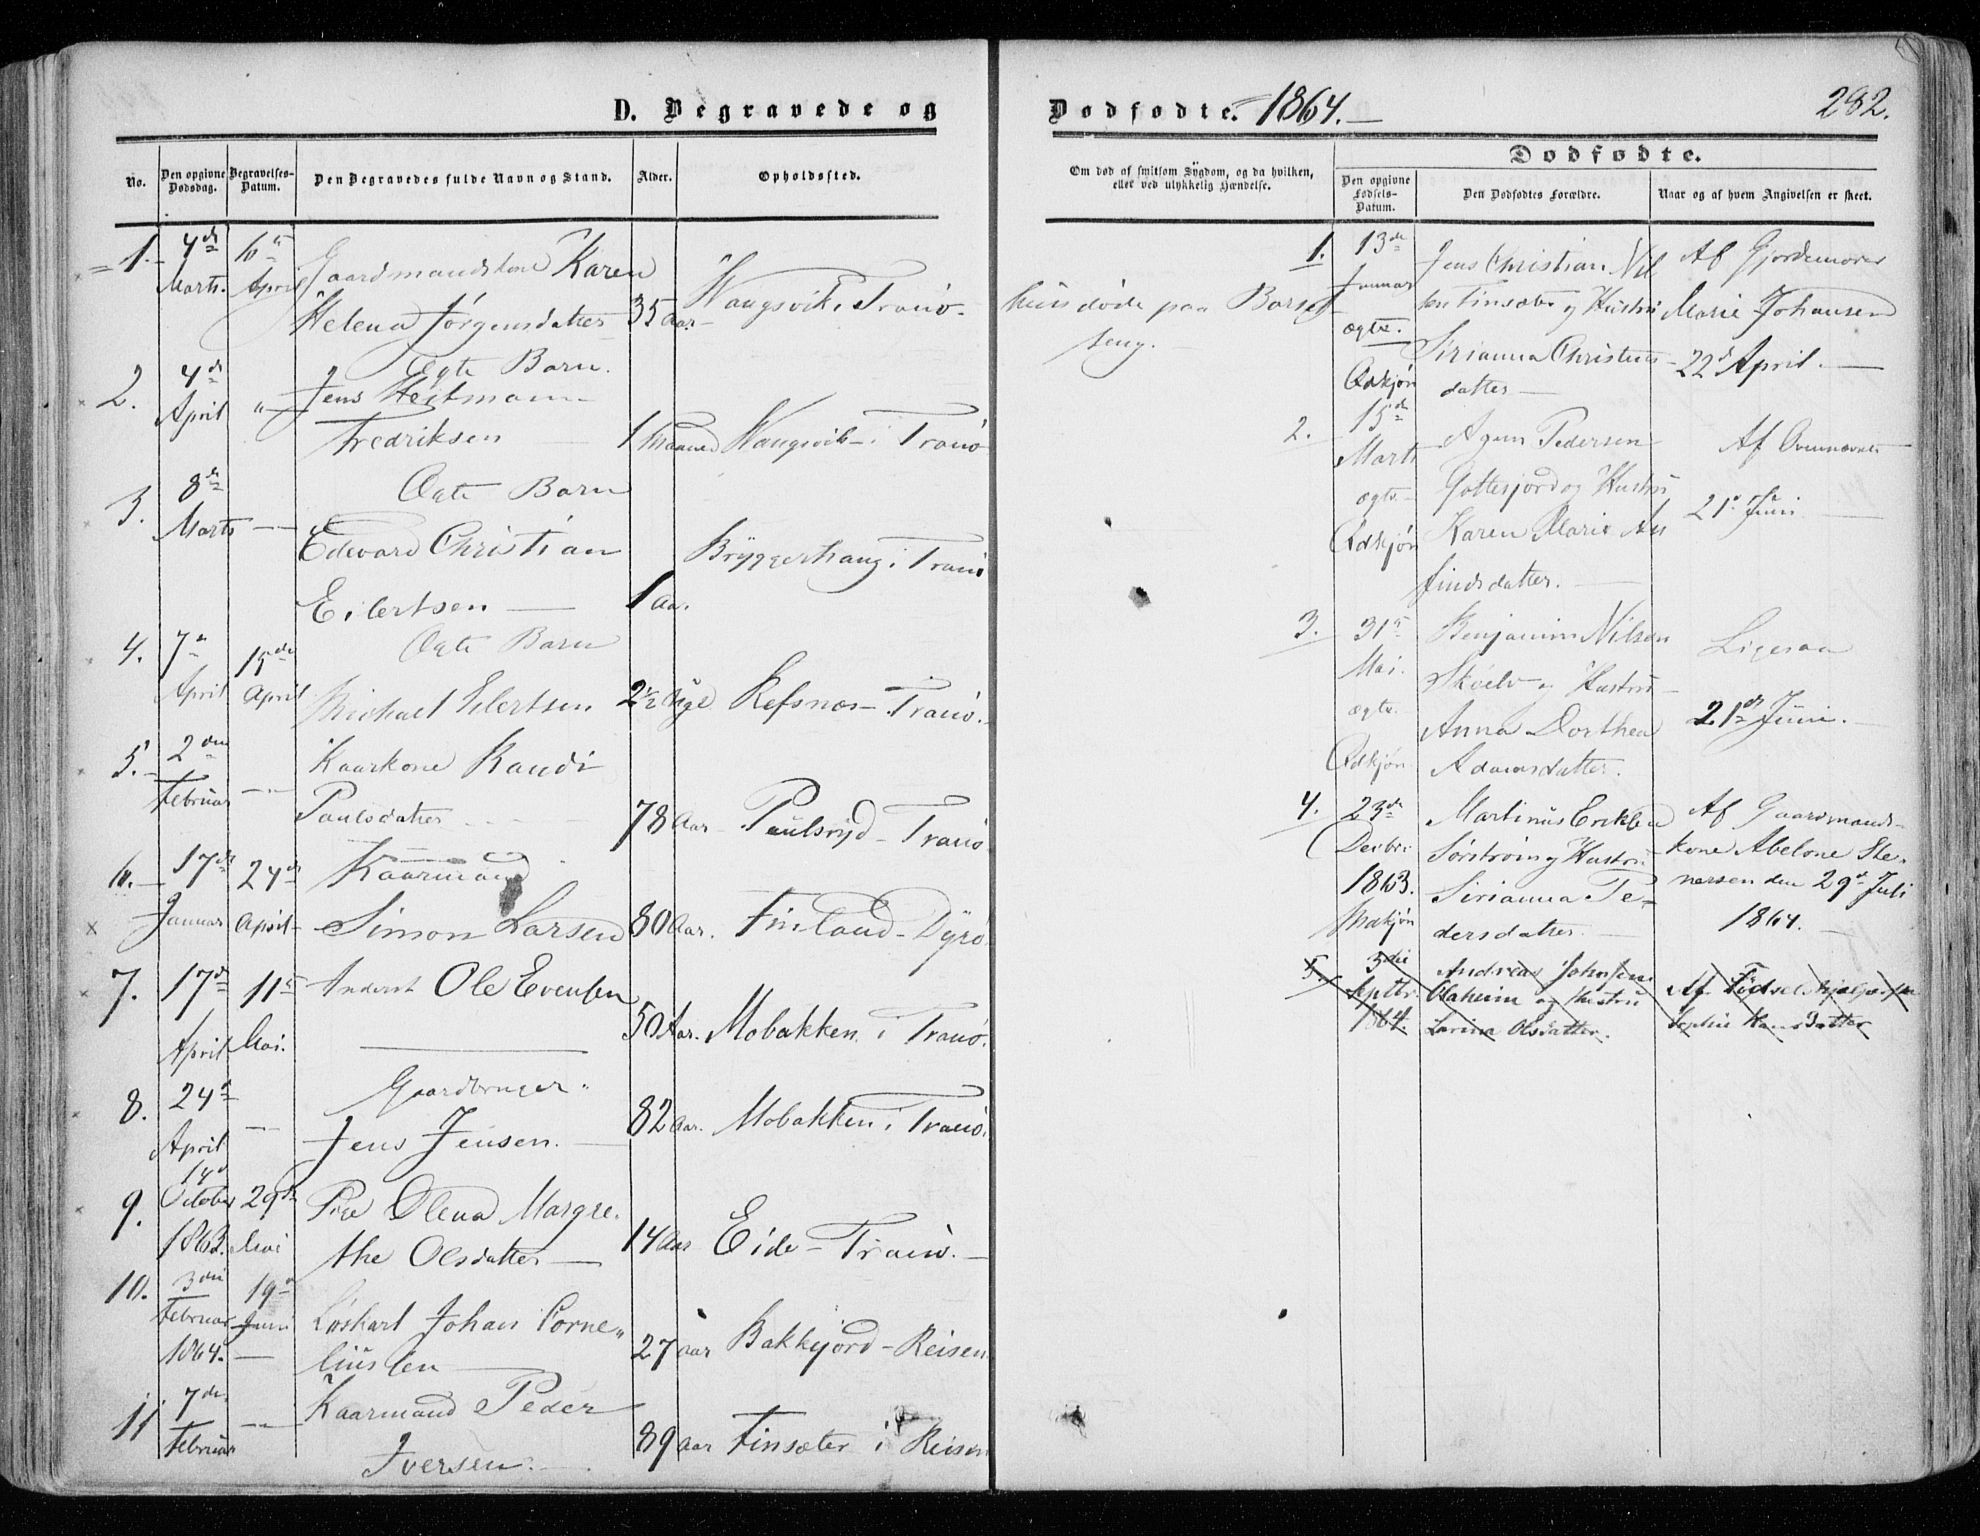 D. Begravede og
No.
Den opgivne Dødsdag.
Begravelses-Datum.
Den Begravedes fulde Navn og Stand.
Alder.
Opholdssted.
1. 4de Marts. 6te April Gaardmandskone Karen
Helena Jörgensdatter 35 Aar Wangsvik i Tranö.
2. 4de April " Ægte Barn.
Jens Heitmann
Fredriksen 1 Maaned Wangsvik i Tranö
3. 8de Marts — Ægte Barn
Edevard Christian
Eilertsen — 1 Aar. Bryggerhaug i Tranö
4. 7de April 15de April Ægte Barn
Michael Eilertsen 2½ Uge Refsnæs – Tranö.
5. 2den Februar — Kaarkone Randi
Paulsdatter 78 Aar Paulsryd – Tranö
6. 17de Januar 24de April Kaarmand
Simon Larsen 80 Aar. Finland – Dyrö
7. 17de April 11te Mai. Inderst Ole Evensen
50 Aar. Mobakken i Tranö.
8. 24de April — Gaardbruger
Jens Jensen. — 82 Aar. Mobakken i Tranö.
9. 14de October 1863. 29de Mai Pige Olena Margre-
the Olsdatter — 14 Aar Eide – Tranö. —
10. 3die Februar 1864. 19de Juni Löskarl Johan Corne-
liussen 27 Aar Bakkejord – Reisen.
11 7de Februar — Kaarmand Peder
Iversen. — 89 Aar Finsæter i Reisen
Dødfødte. 1864. —
282.
Om død af smitsom Sygdom, og da hvilken,
eller ved ulykkelig Hændelse.
Dødfødte.
Den opgivne Fødsels-Datum.
Den Dødfødtes Forældre.
Naar og af hvem Angivelsen er skeet.
hun döde paa Barsel-
seng. —
1. 13de Januar ægte. Qvdkjön
Jens Christian Nil
sen Finsæter og Hustru
Sirianna Christens-
datter —
Af Gjordemoder
Marie Johansen
22de April. —
2. 15de Marts ægte Qvdkjön
Agnn Pedersen
Gottesjord og Hustru
Karen Marie
findsdatter. —
Af Ovennævnte
21de Juni —
3. 31te Mai. ægte. Qvdkjön
Benjamin Nilsen
Skoelv og Hustru
Anna Dorthea
Adamsdatter.
Ligesaa
21de Juni. —
4. 23de Decbr 1863. Mdkjön
Martinus Eriksen
Sörström og Hustru
Sirianna Pe-
dersdatter. —
Af Gaardmands-
kone Abelone Ste-
nersen den 29de Juli
1864. —
5. 3die Septbr. 1864.
Andreas Johnsen
Olaheim og Hustru
Larina Olsdatter.
Af Fødselshjælperske
Sophie Hansdatter